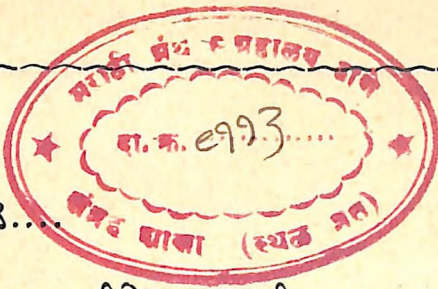 मराठी ग्रंथ संग्रहालय ठाणे
दा. क्र. ९११३
संग्रह शाखा (स्थळ प्रत)